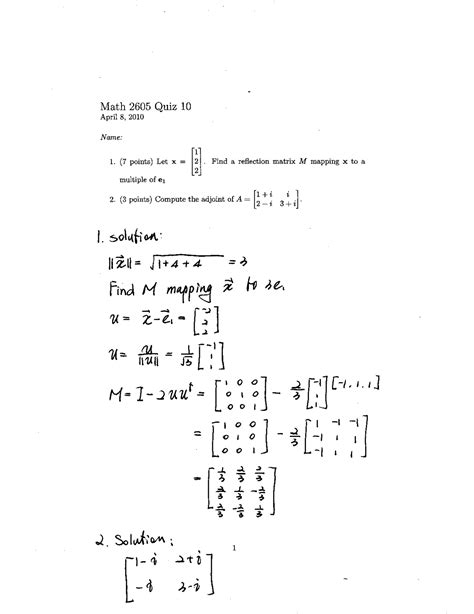 Math 2605 Quiz 10
April 8, 2010
Name:
1. (7 points) Let x = [1 2 2]. Find a reflection matrix M mapping x to a
multiple of e1
2. (3 points) Compute the adjoint of A = [1 + i i; 2 − i 3 + i].
1. solution:
||x|| = √1+4+4 = 3
Find M mapping x to 3e1
u = x - e1 = [-2 2 2]
u = u/||u|| = 1/√3 [-1 1 1]
M = I - 2uu^t = [1 0 0; 0 1 0; 0 0 1] - 2/3 [-1 1 1] [-1, 1, 1]
= [1 0 0; 0 1 0; 0 0 1] - 2/3 [1 -1 -1; -1 1 1; -1 1 1]
= [1/3 2/3 2/3; 2/3 1/3 -2/3; 2/3 -2/3 1/3]
2. Solution:
1
[1-i 2+i; -i 3-i]